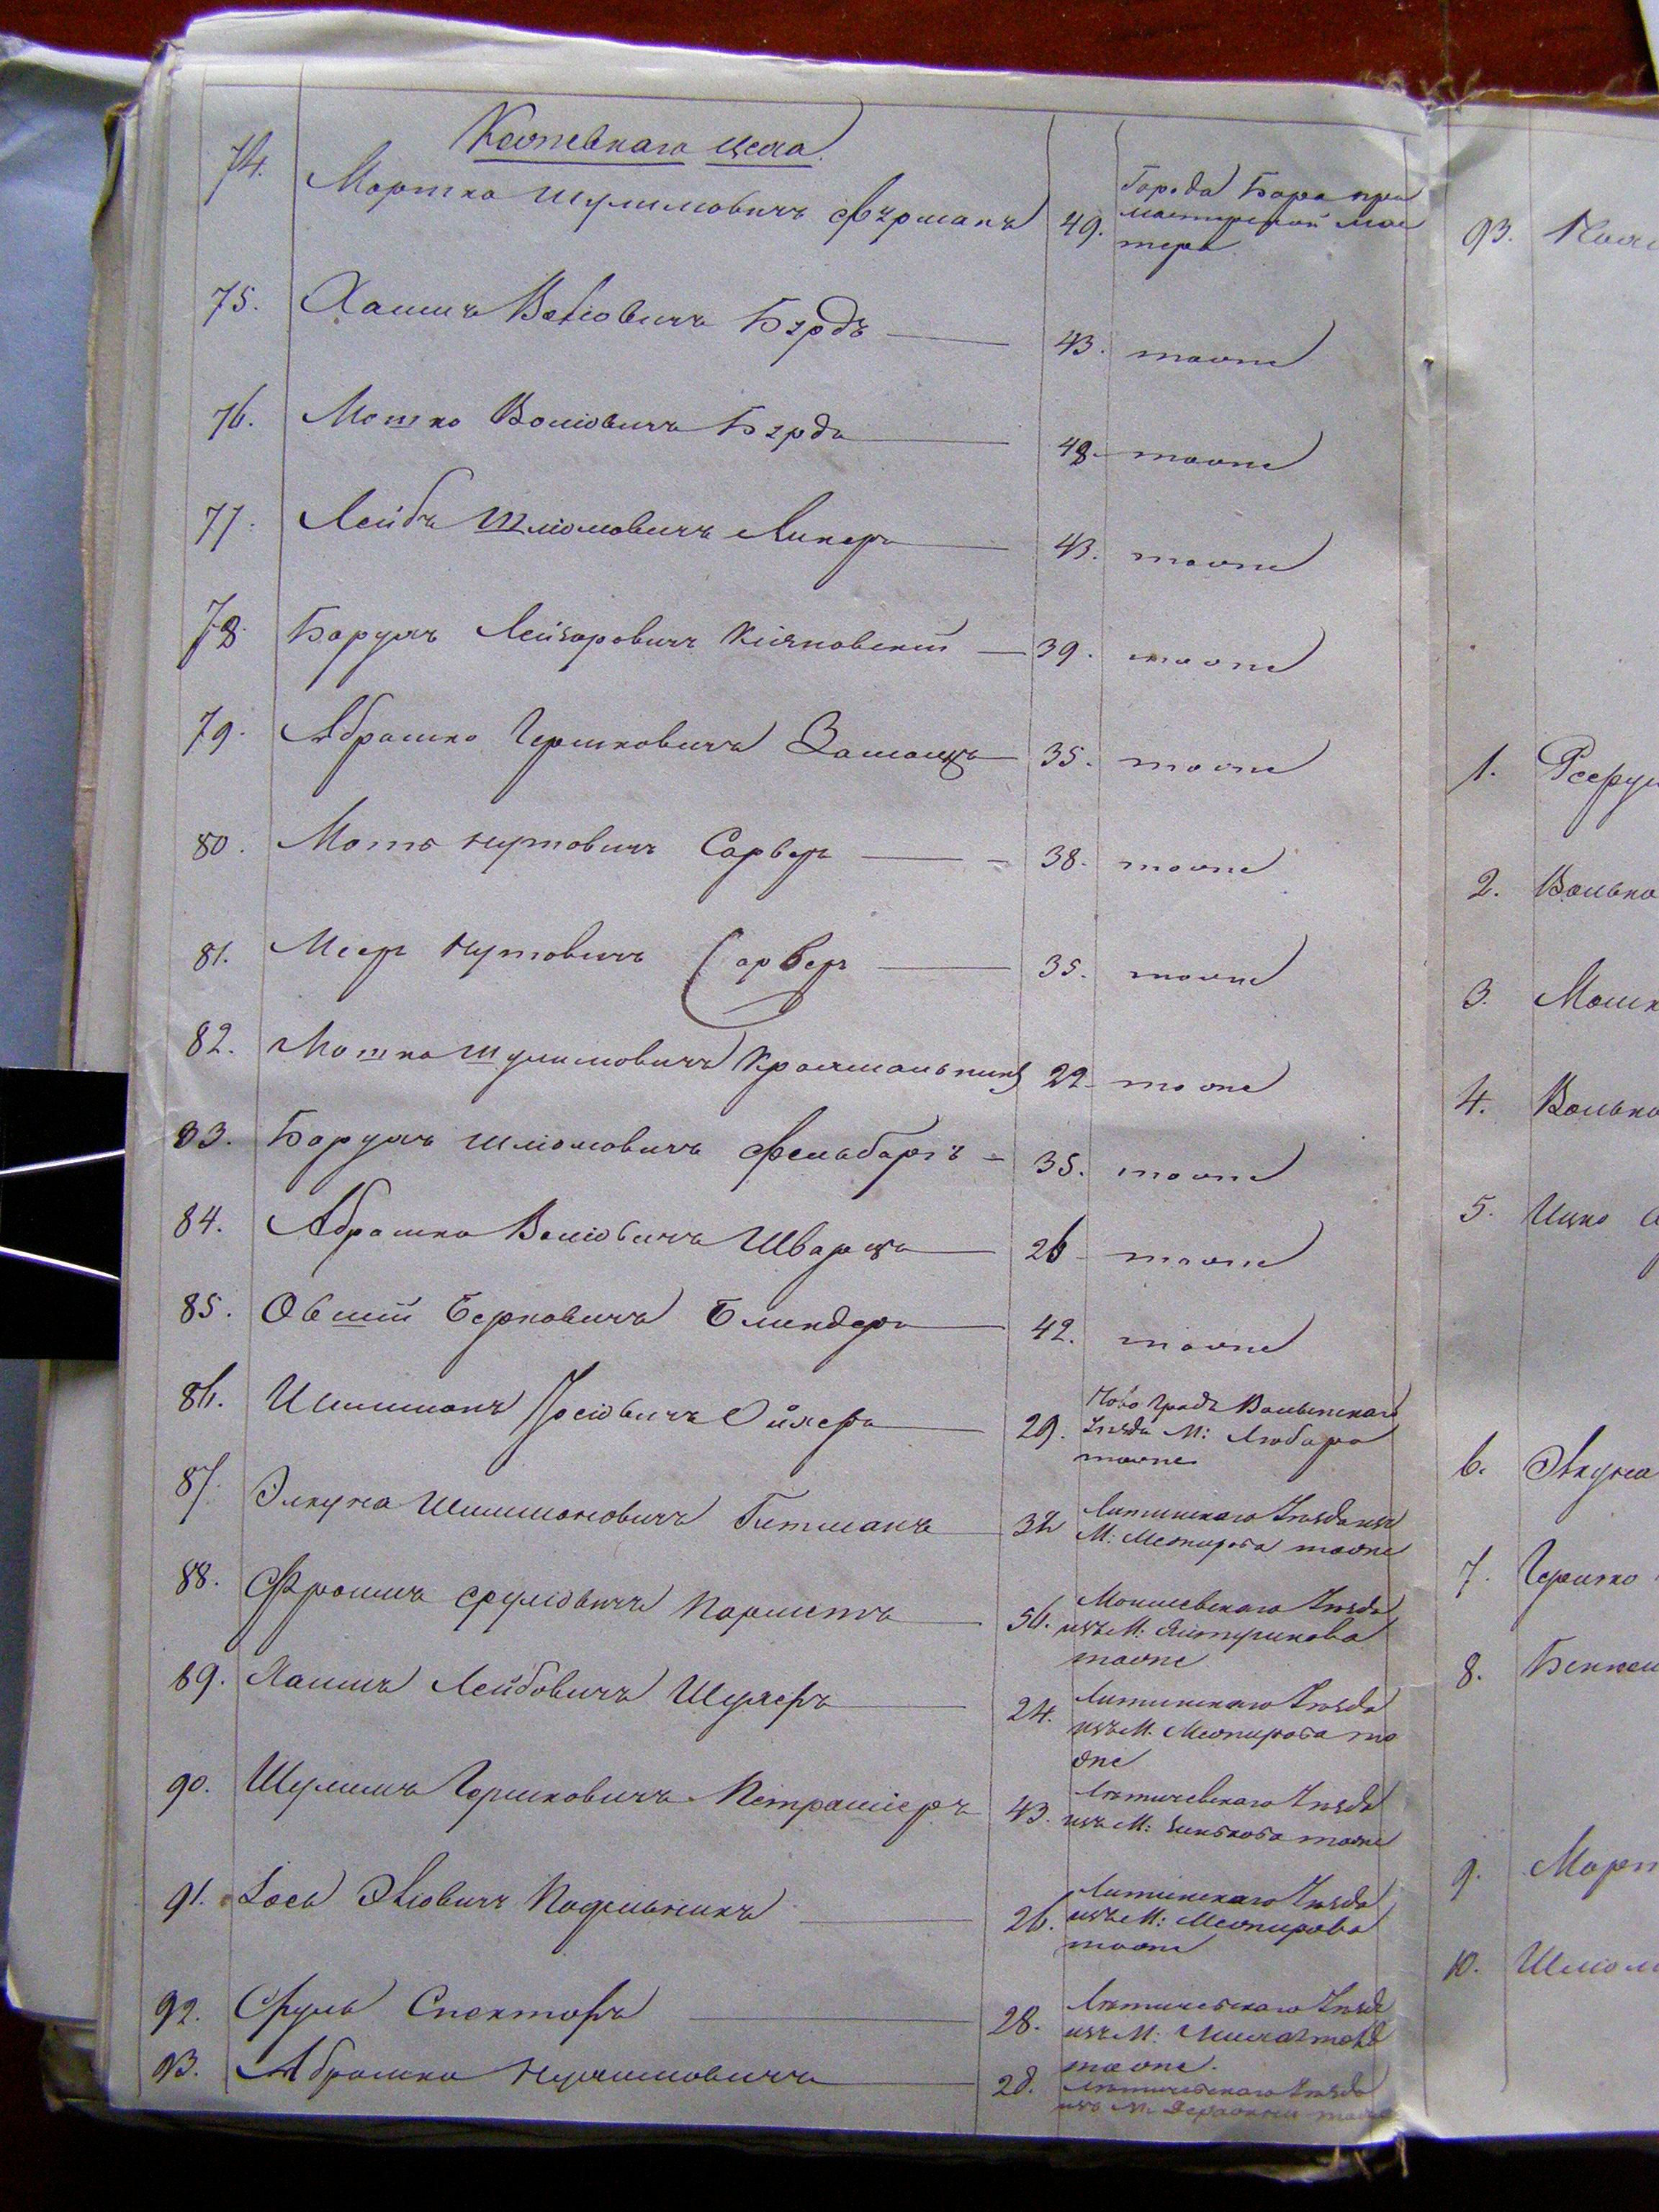 74. Мортко Шулимовичъ Фурманъ 49. Города Бара при
тера
75. Хаимъ Вольовичъ Бэрдъ 43. тоже
76. Мотко Вольовичъ Бэрдъ 48 тоже
77. Лейбъ Шлiомовичъ Линеръ 43. тоже
78. Барухъ Лейзоровичъ Кiяновскiй 39. тоже
79. Абрамко Гершковичъ 35. тоже
80. Мотя Нутовичъ Сарверъ 38. тоже
81. Мееръ Нутовичъ Сарверъ 35. тоже
82. Мотко Шулимовичъ Крахмальникъ 22 тоже
83. Барухъ Шлiомовичъ Фельбаргъ 35. тоже
84. Абрамко Вольовичъ Шварцъ 26 тоже
85. Овшiй Берковичъ Блиндеръ 42. тоже
86. Шимшонъ Iосiовичъ Ойхеръ 29. Новоградъ Волынскаго
Уѣзда М: Любара
тоже
87. Элкуна Шимшоновичъ Гитманъ 32 Литинскаго Уѣзда изъ
М: Межирова тоже
88. Фроимъ Срулiовичъ 56. Уѣзда
изъ М:
тоже
89. Хаимъ Лейбовичъ Шухеръ 24. Литинскаго Уѣзда
изъ М. Межирова то
же
90. Шулимъ Гершковичъ 43. Летичевскаго Уѣзда
изъ М: Зинькова тоже
91. Iось 26. Литинскаго Уѣзда
изъ М: Межирова
тоже
92. Сруль Спекторъ 28. Летичевскаго Уѣзда
изъ М:
тоже.
93. Абрамко Нухимовичъ 28. Летичевскаго Уѣзда
изъ М. Деражни тоже
93.
1.
2. Волько
3. Мошк
4. Волько
5. Ицко
6.
7. Гершко
8.
9. Морт
10. Шлiом